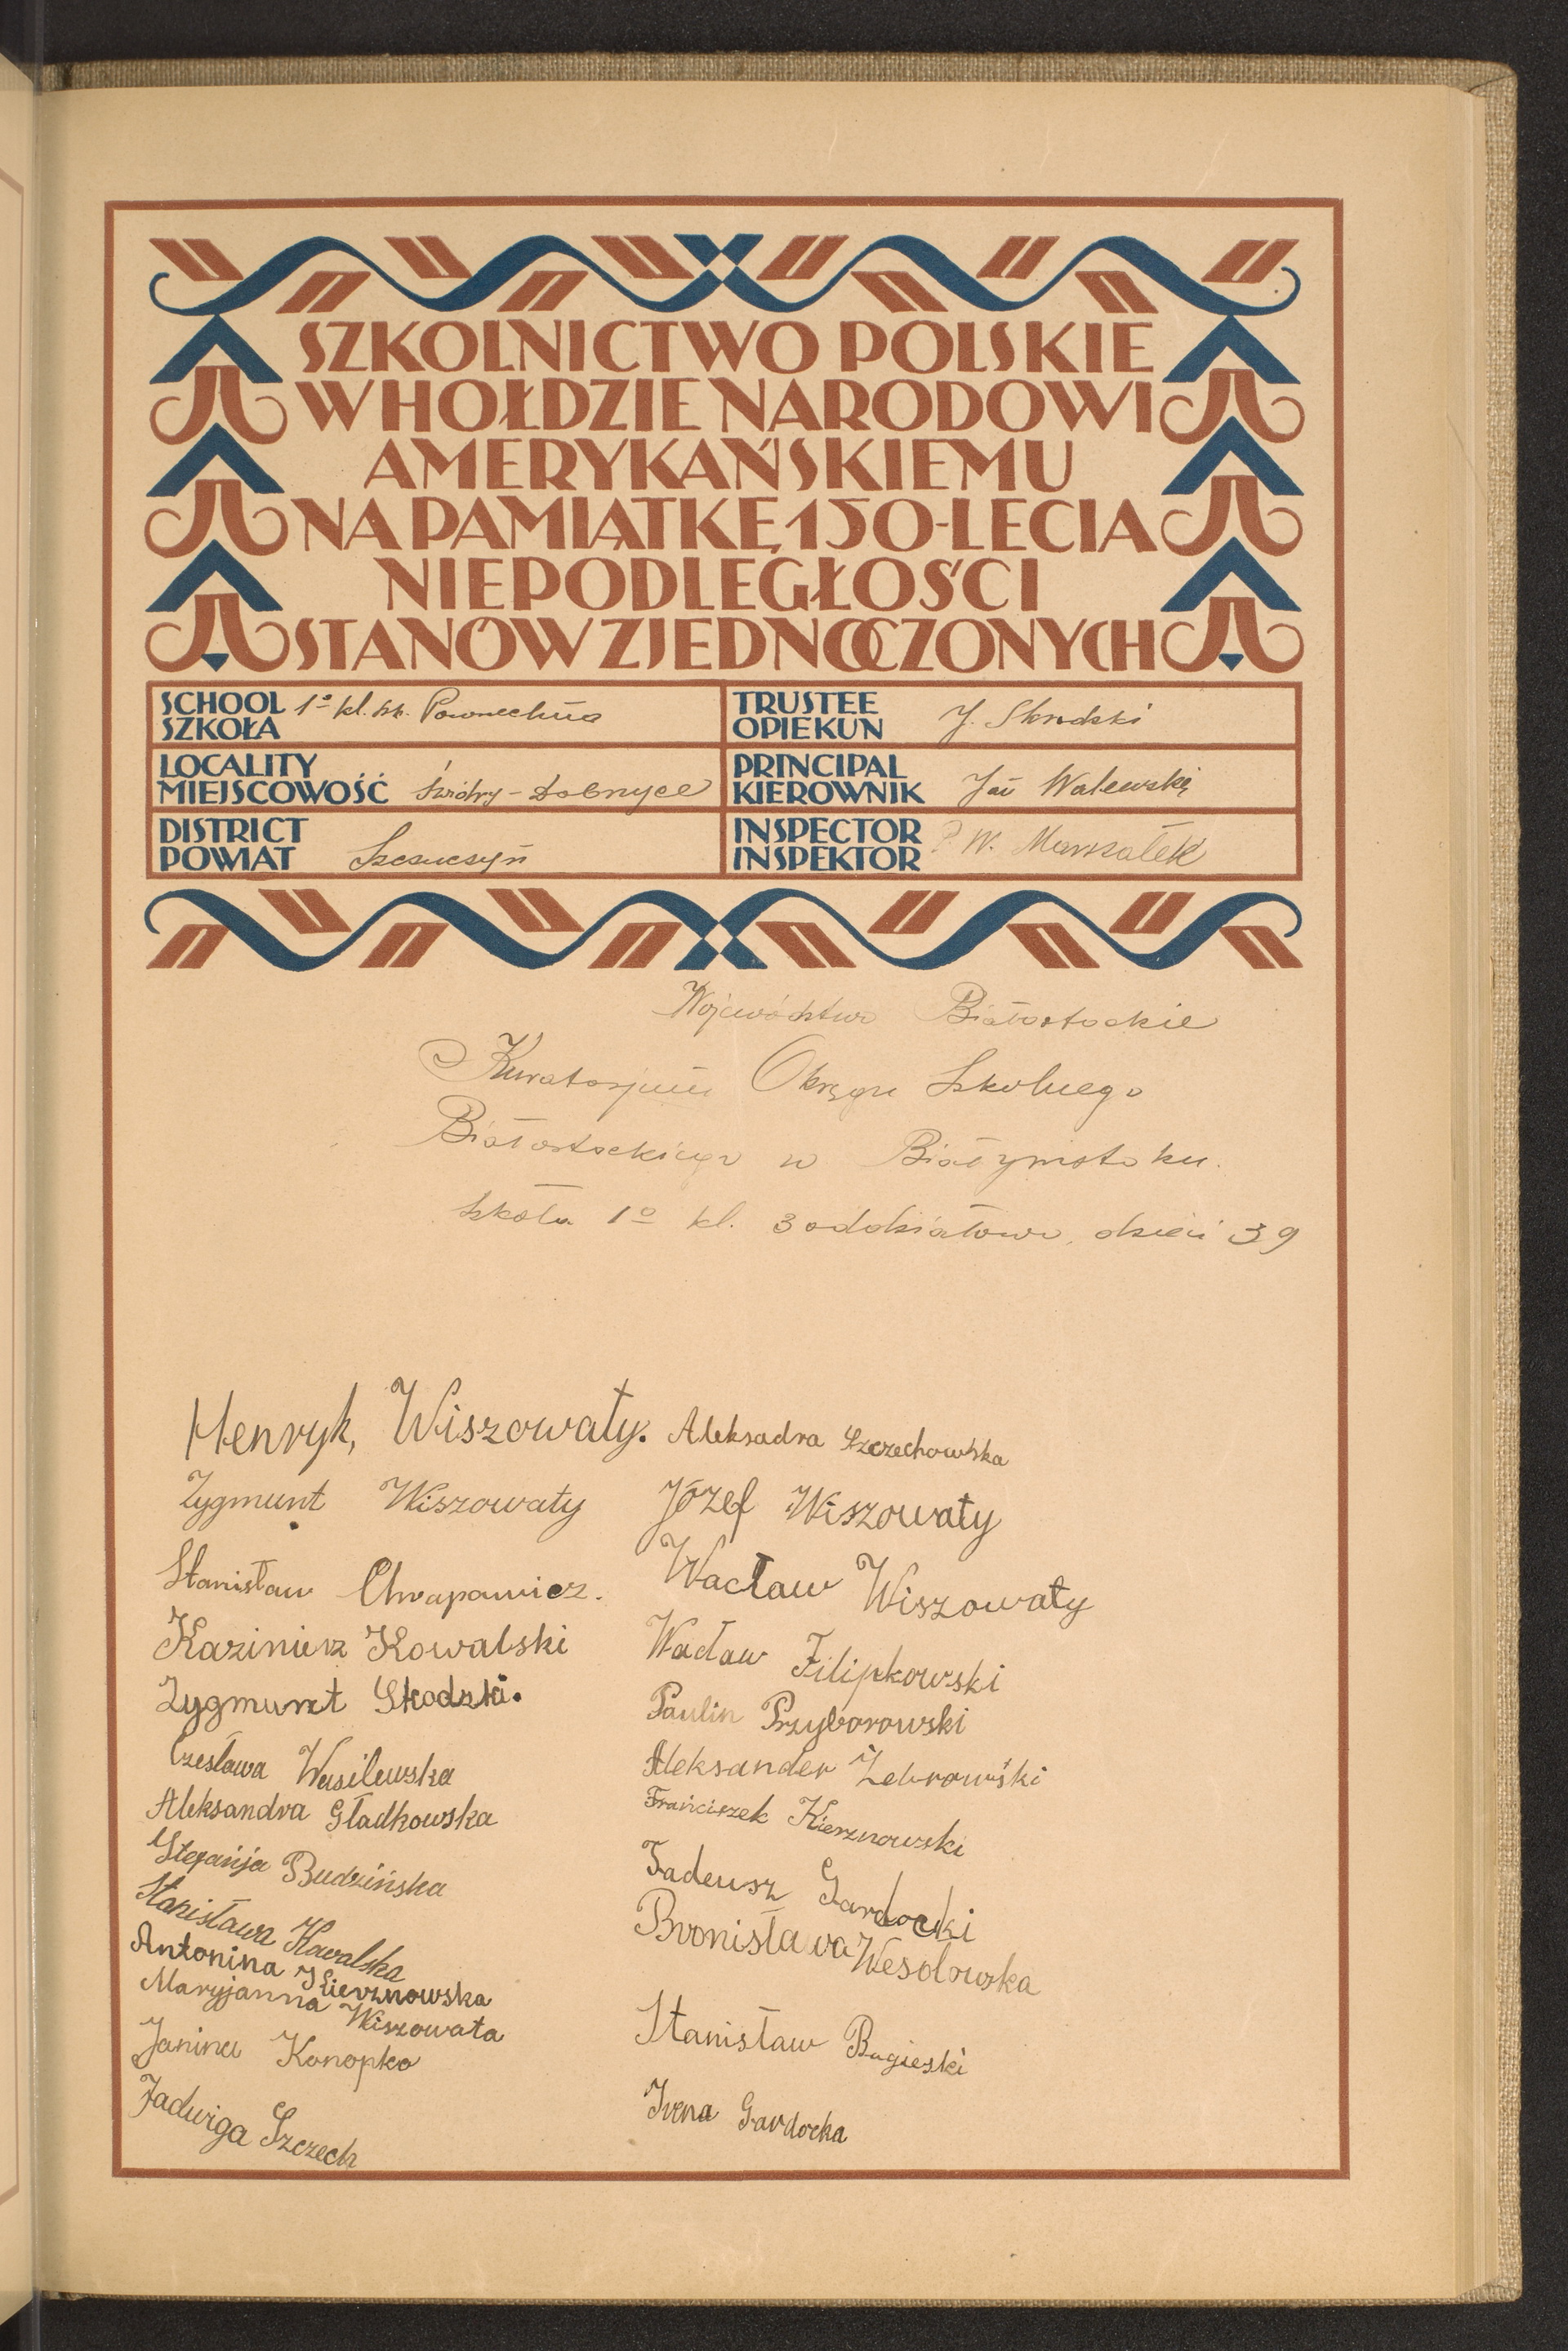 SZKOLNICTWO POLSKIE
W HOŁDZIE NARODOWI
AMERYKAŃSKIEMU
NA PAMIĄTKĘ 150-LECIA
NIEPODLEGŁOŚCI
STANÓW ZJEDNOCZONYCH
SCHOOL
SZKOŁA 1º kl. szk. Powszechna
TRUSTEE
OPIEKUN J. Skrodzki
LOCALITY
MIEJSCOWOŚĆ Świdry-Dobrzyce
PRINCIPAL
KIEROWNIK Jan Walewski
DISTRICT
POWIAT Szczuczyń
INSPECTOR
INSPEKTOR W. Marszałek
Województwo Białostockie
Kuratorjum Okręgu Szkolnego
Białostockiego w Białymstoku.
Szkoła 1º kl. 3 oddziałowa, dzieci 39
Henryk, Wiszowaty. Aleksadra Szczechowska
Zygmunt Wiszowaty Józef Wiszowaty
Stanisław Chrapowicz. Wacław Wiszowaty
Kazimierz Kowalski Wacław Filipkowski
Zygmunt Skodzki. Paulin Przyborowski
Czesława Wasilewska Aleksander Żebrowski
Aleksandra Gładkowska Franciszek Kierznowski
Stefanja Budzińska Tadeusz Gardocki
Stanisława Kowalska Bronisława Wesołowska
Antonina Kierznowska
Maryjanna Wiszowata Stanisław Bagieski
Janina Konopko
Jadwiga Szczech Irena Gardocka